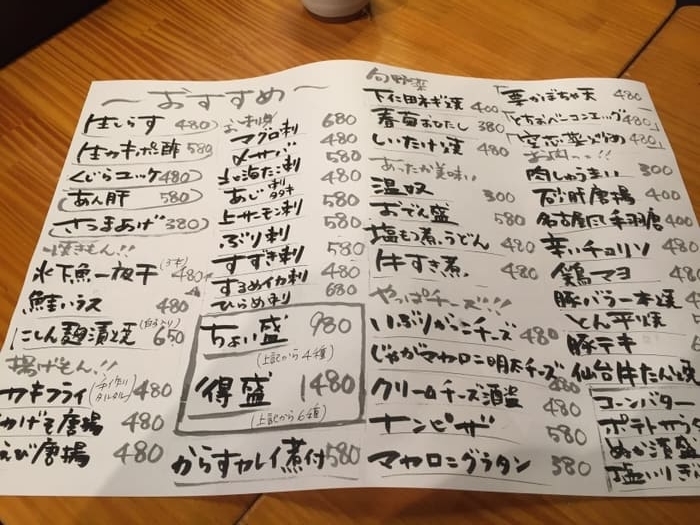 〜おすすめ〜
生しらす 480
生カキポン酢 580
くじらユッケ 480
あん肝 580
さつまあげ 380
焼きもん!!
氷下魚一夜干 480
鮭ハラス 480
にしん麹漬焼 650
揚げもん!!
カキフライ 480
いかげそ唐揚 480
えび唐揚 480
お刺身
マグロ刺 680
〆サバ 580
北海たこ刺 480
あじ 刺 タタキ 480
上サーモン刺 580
ぶり刺 580
すずき刺 580
するめイカ刺 480
ひらめ刺 680
ちょい盛 980
(上記から4種)
得盛 1480
(上記から6種)
からすカレイ煮付 580
旬野菜
下仁田ネギ焼 400
春菊おひたし 380
しいたけ焼 480
あったか美味い
温奴 300
おでん盛 580
塩もつ煮うどん 480
牛すき煮 480
やっぱチーズ!!!
いぶりがっこチーズ 480
じゃがマカロニ明太チーズ 480
クリームチーズ酒盗 480
ナンピザ 580
マカロニグラタン 580
栗かぼちゃ天 480
とちおベーコンエッグ 480
空芯菜炒め 480
お肉っっ!!
肉しゅうまい 300
砂肝唐揚 400
名古屋風手羽唐 400
辛いチョリソ 480
鶏マヨ 480
豚バラ一本焼
とん平焼
豚テキ
仙台牛たん焼
コーンバター
ポテトサラダ
ぬか漬盛